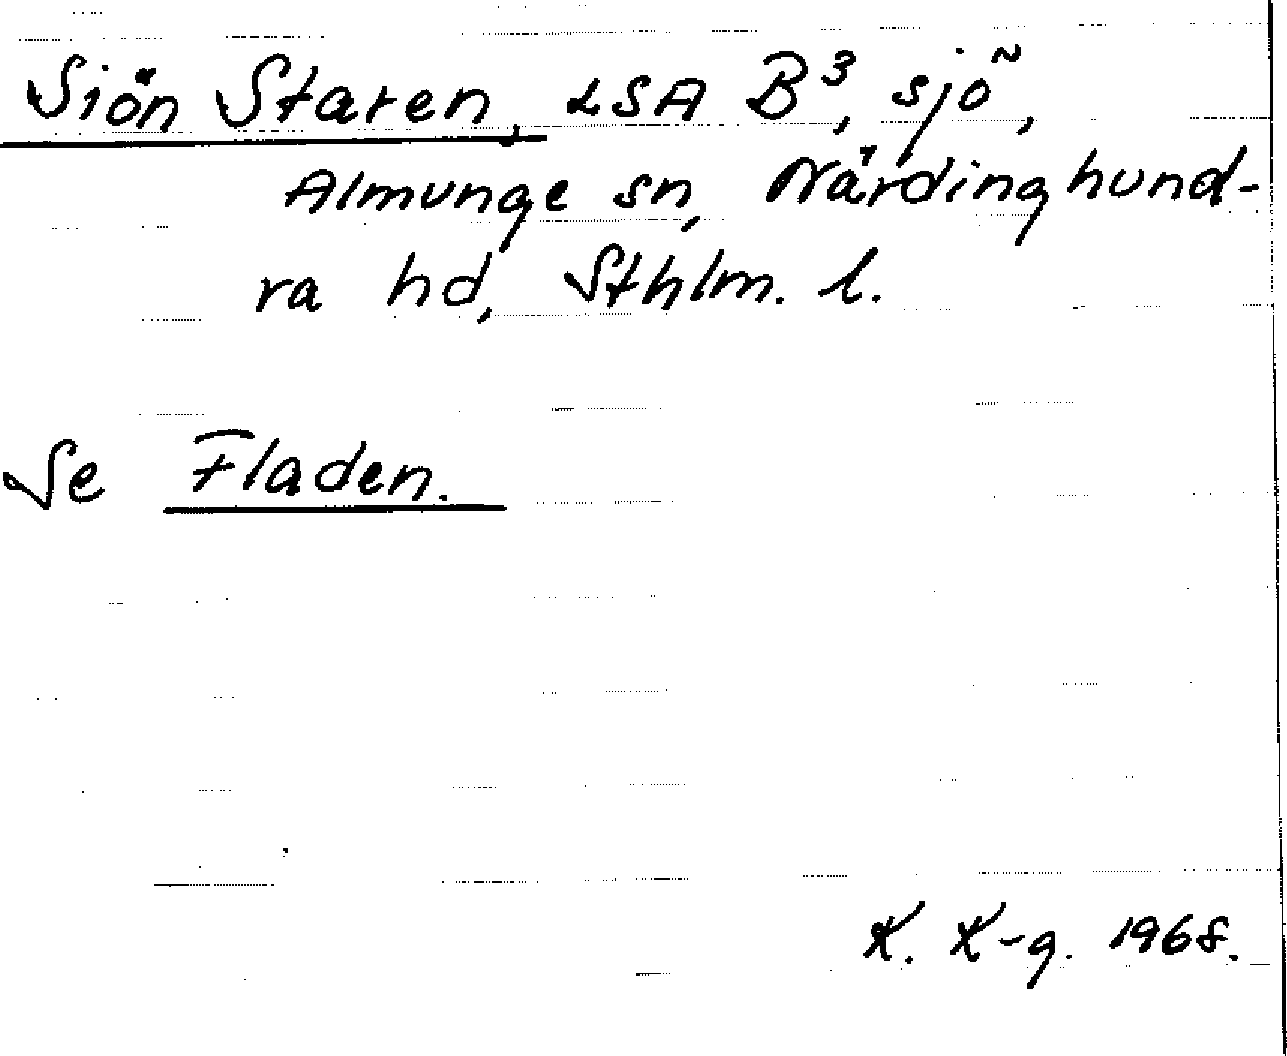 Siön Staren, LSA B³, sjö,
Almunge sn, Närdinghund-
ra hd, Sthlm. l.
Se Fladen.
K. K-g. 1968.